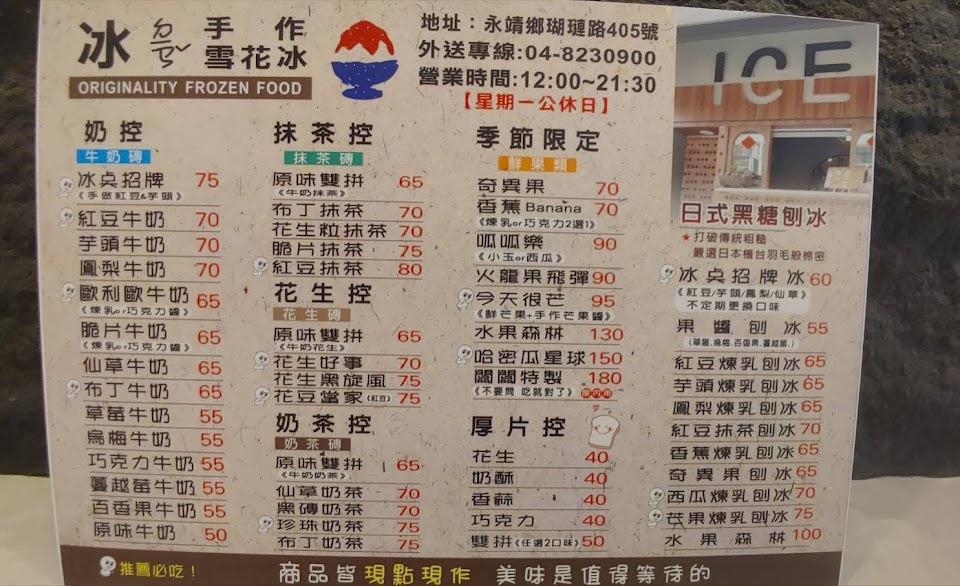 冰ㄉㄜ˙ 手作
雪花冰
ORIGINALITY FROZEN FOOD
地址：永靖鄉瑚璉路405號
外送專線:04-8230900
營業時間:12:00~21:30
【星期一公休日】
ICE
奶控
牛奶磚
冰桌招牌 75
《手做紅豆&芋頭》
紅豆牛奶 70
芋頭牛奶 70
鳳梨牛奶 70
歐利歐牛奶 65
《煉乳or巧克力醬》
脆片牛奶 65
《煉乳or巧克力醬》
仙草牛奶 65
布丁牛奶 65
草莓牛奶 55
烏梅牛奶 55
巧克力牛奶 55
蔓越莓牛奶 55
百香果牛奶 55
原味牛奶 50
抹茶控
抹茶磚
原味雙拼 65
《牛奶抹茶》
布丁抹茶 70
花生粒抹茶 70
脆片抹茶 75
紅豆抹茶 80
花生控
花生磚
原味雙拼 65
《牛奶花生》
花生好事 70
花生黑旋風 75
花豆當家(紅豆) 75
奶茶控
奶茶磚
原味雙拼 65
《牛奶奶茶》
仙草奶茶 70
黑磚奶茶 70
珍珠奶茶 75
布丁奶茶 75
季節限定
鮮果類
奇異果 70
香蕉Banana 70
《煉乳or巧克力2選1》
呱呱樂 90
《小玉or西瓜》
火龍果飛彈 90
今天很芒 95
《鮮芒果+手作芒果醬》
水果森林 130
哈密瓜星球 150
闆闆特製 180
《不要問 吃就對了》 限內用
厚片控
花生 40
奶酥 40
香蒜 40
巧克力 40
雙拼(任選2口味) 50
日式黑糖刨冰
★打破傳統粗糙
嚴選日本機台羽毛般棉密
冰桌招牌冰 60
《紅豆/芋頭/鳳梨/仙草》
不定期更換口味
果醬刨冰 55
(草莓、烏梅、百香果、蔓越莓、)
紅豆煉乳刨冰 65
芋頭煉乳刨冰 65
鳳梨煉乳刨冰 65
紅豆抹茶刨冰 70
香蕉煉乳刨冰 65
奇異果刨冰 65
西瓜煉乳刨冰 70
芒果煉乳刨冰 75
水果森林 100
推薦必吃！
商品皆現點現作 美味是值得等待的